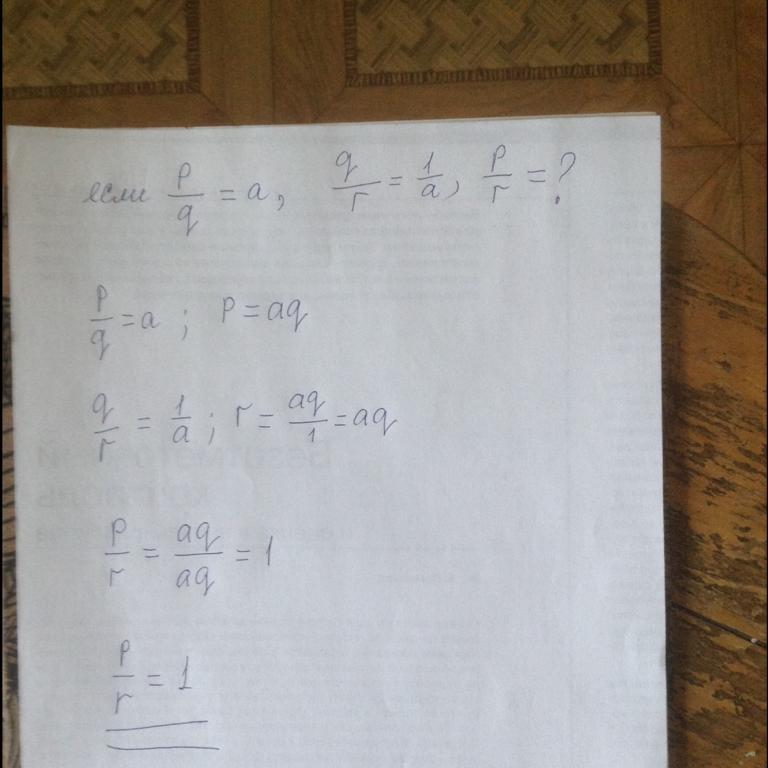 если p/q = a, q/r = 1/a, p/r = ?
p/q = a ; p = aq
q/r = 1/a ; r = aq/1 = aq
p/r = aq/aq = 1
p/r = 1